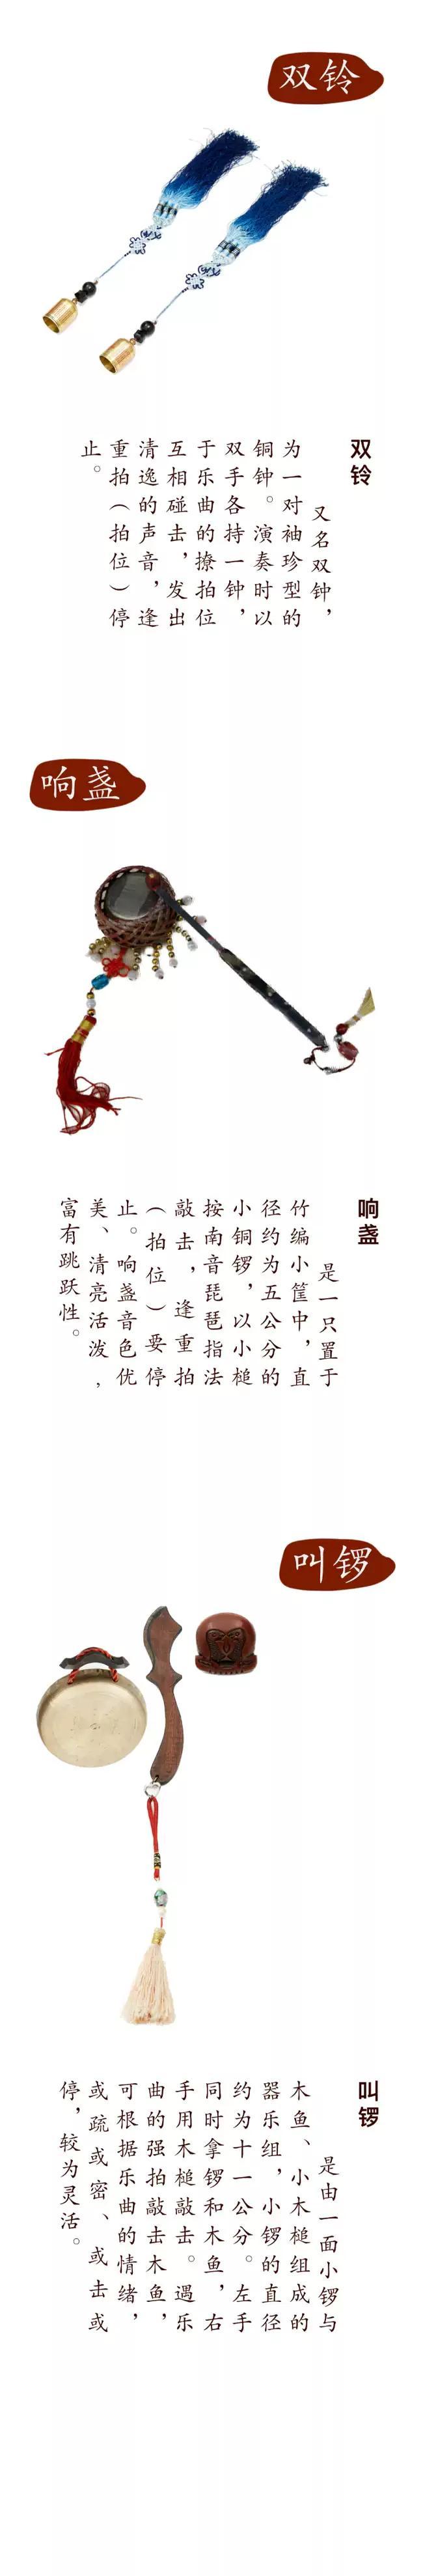 双铃
双铃
又名双钟，
为一对袖珍型的
铜钟。演奏时以
双手各持一钟，
于乐曲的撩拍位
互相碰击，发出
清逸的声音，逢
重拍（拍位）停
止。
响盏
响盏
是一只置于
竹编小筐中，直
径约为五公分的
小铜锣，以小槌
按南音琵琶指法
敲击，逢重拍
（拍位）要停
止。响盏音色优
美、清亮活泼，
富有跳跃性。
叫锣
叫锣
是由一面小锣与
木鱼、小木槌组成的
器乐组，小锣的直径
约为十一公分。左手
同时拿锣和木鱼，右
手用木槌敲击。遇乐
曲的强拍敲击木鱼，
可根据乐曲的情绪，
或疏或密、或击或
停，较为灵活。